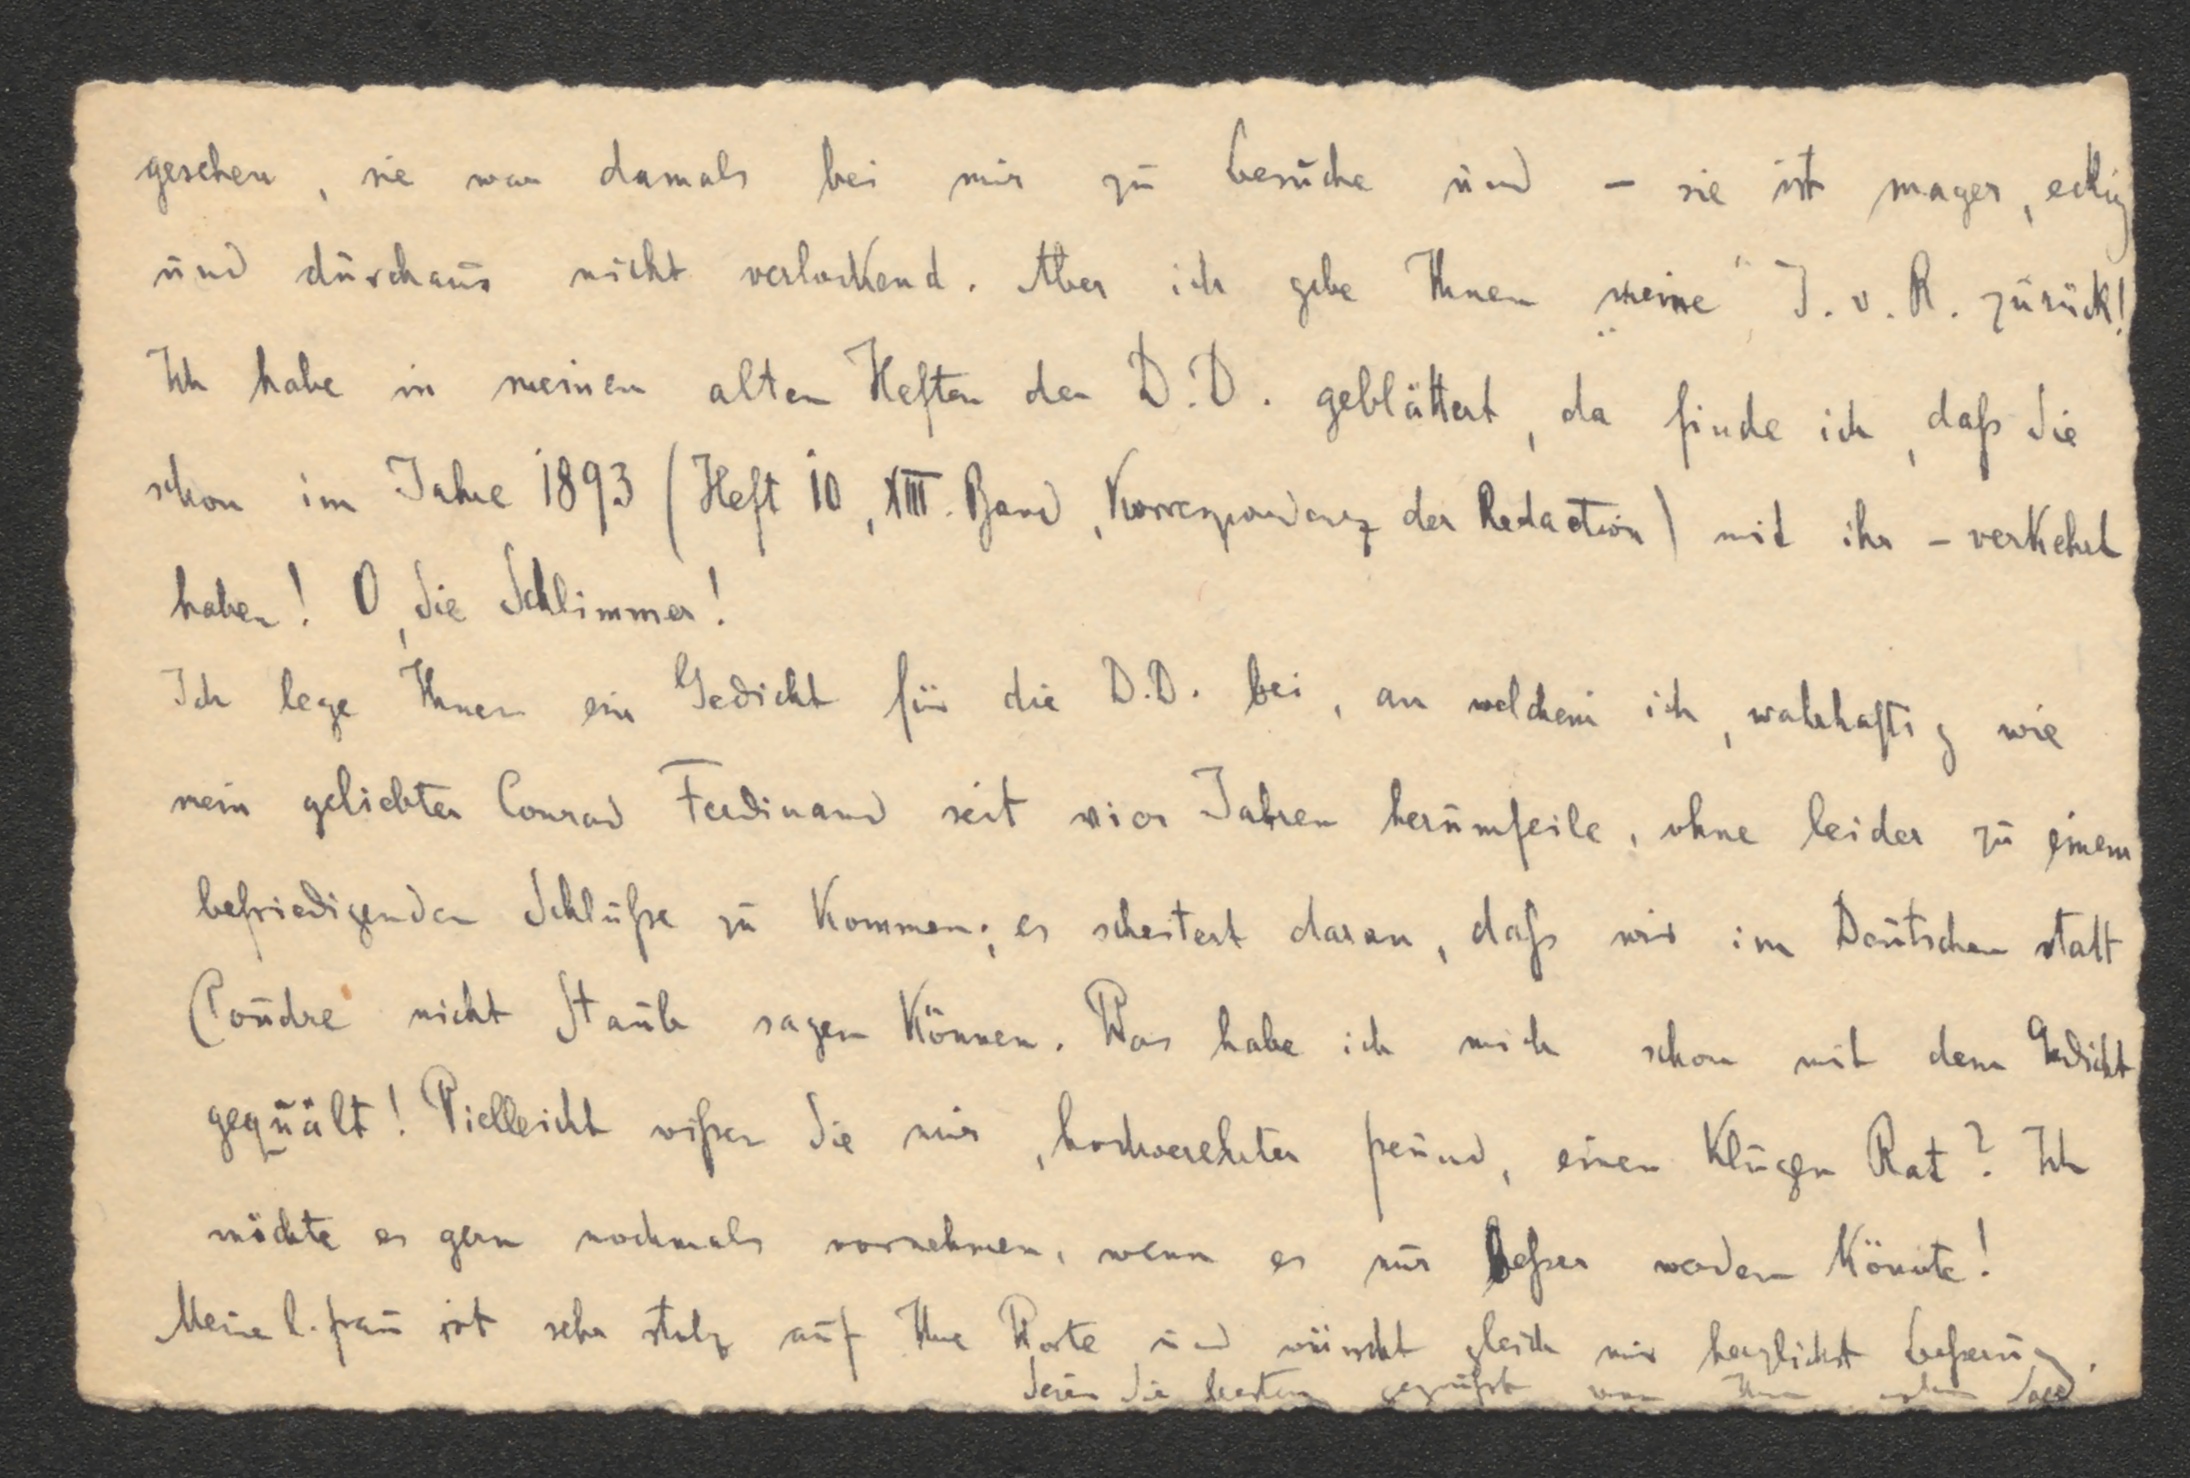 gesehen, sie war damals bei mir zu Besuche und – sie ist mager, eckig
und durchaus nicht verlockend. Aber ich gebe Ihnen „meine“ I. v. R. zurück!
Ich habe in meinen alten Heften der D.D. geblättert, da finde ich, daß Sie
schon im Jahre 1893 (Heft 10, XIII. Band, Korrespondenz der Redaction) mit ihr – verkehrt
haben! O, Sie Schlimmer!
Ich lege Ihnen ein Gedicht für die D.D. bei, an welchem ich, wahrhaftig wie
mein geliebter Conrad Ferdinand seit vier Jahren herumfeile, ohne leider zu einem
befriedigenden Schluße zu kommen; es scheitert daran, daß wir im Deutschen statt
Poudre nicht Staub sagen können. Was habe ich mich schon mit dem Gedicht
gequält! Vielleicht wißen Sie mir, hochverehrter Freund, einen klugen Rat? Ich
möchte es gern nochmals vornehmen, wenn es nur beßer werden könnte!
Meine l. Frau ist sehr stolz auf Ihre Worte und wünscht gleich mir herzlichst Beßerung.
Seien Sie bestens gegrüßt von Ihrem